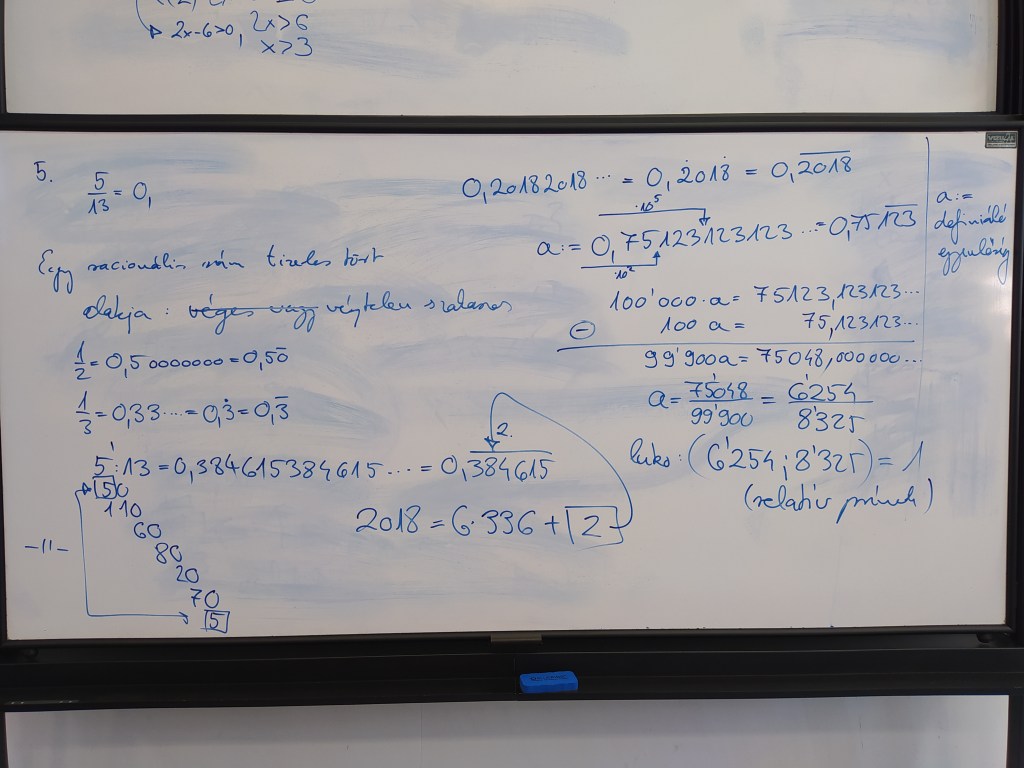 2x-6>0, 2x>6
x>3
5.
5/13 = 0,
Egy racionális szám tizedes tört
alakja: ~~véges vagy~~ végtelen szakaszos
1/2 = 0,50000000 = 0,50̄
1/3 = 0,33... = 0,3̇ = 0,3̄
5:13 = 0,384615384615... = 0,3̅8̅4̅6̅1̅5̅
50
110
60
-11-
80
20
70
5
2.
2018 = 6·336 + 2
0,20182018... = 0,2̇018̇ = 0,2̅0̅1̅8̅
·10⁵
a:= 0,75123123123... = 0,751̅2̅3̅
·10²
100'000·a = 75123,123123...
⊖ 100 a = 75,123123...
99'900a = 75048,000000...
a = 75'048/99'900 = 6'254/8'325
luko: (6'254; 8'325) = 1
(relatív prímek)
a:=
definiáló
egyenlőség